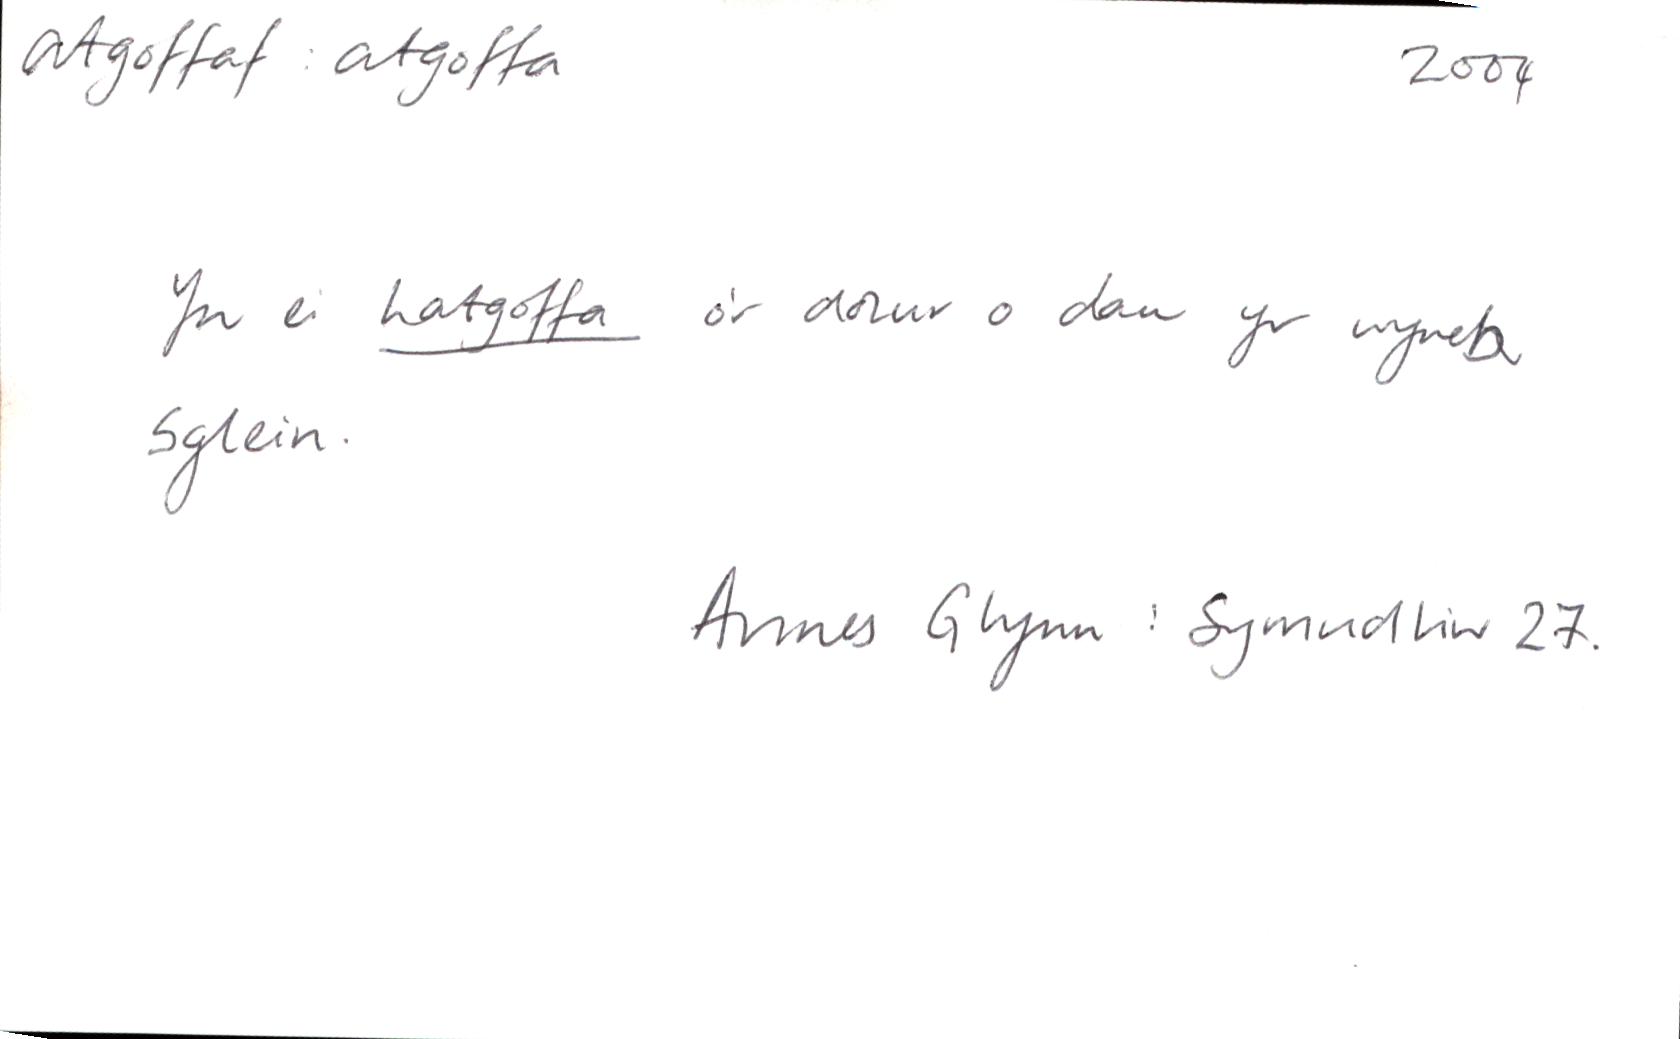 atgoffaf : atgoffa 2004
Yn ei hatgoffa o'r dolur o dan yr wyneb
sglein.
Annes Glynn : Symudliw 27.